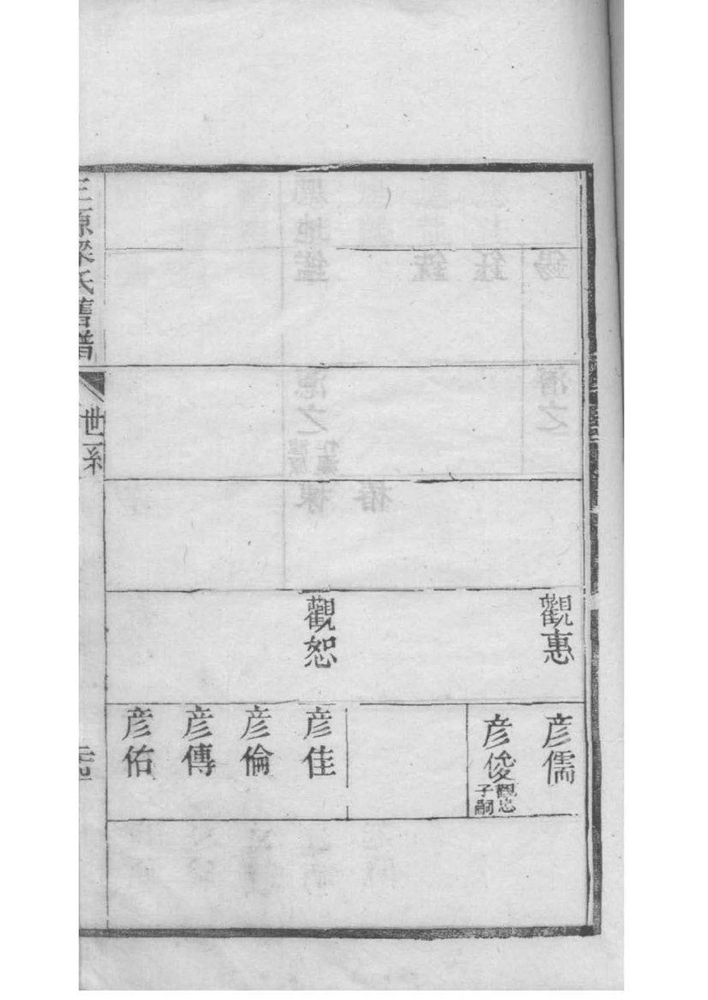 觀惠
觀恕
彥儒
彥俊
觀忠
子嗣
彥佳
彥倫
彥傳
彥佑
三原梁氏舊譜
世系